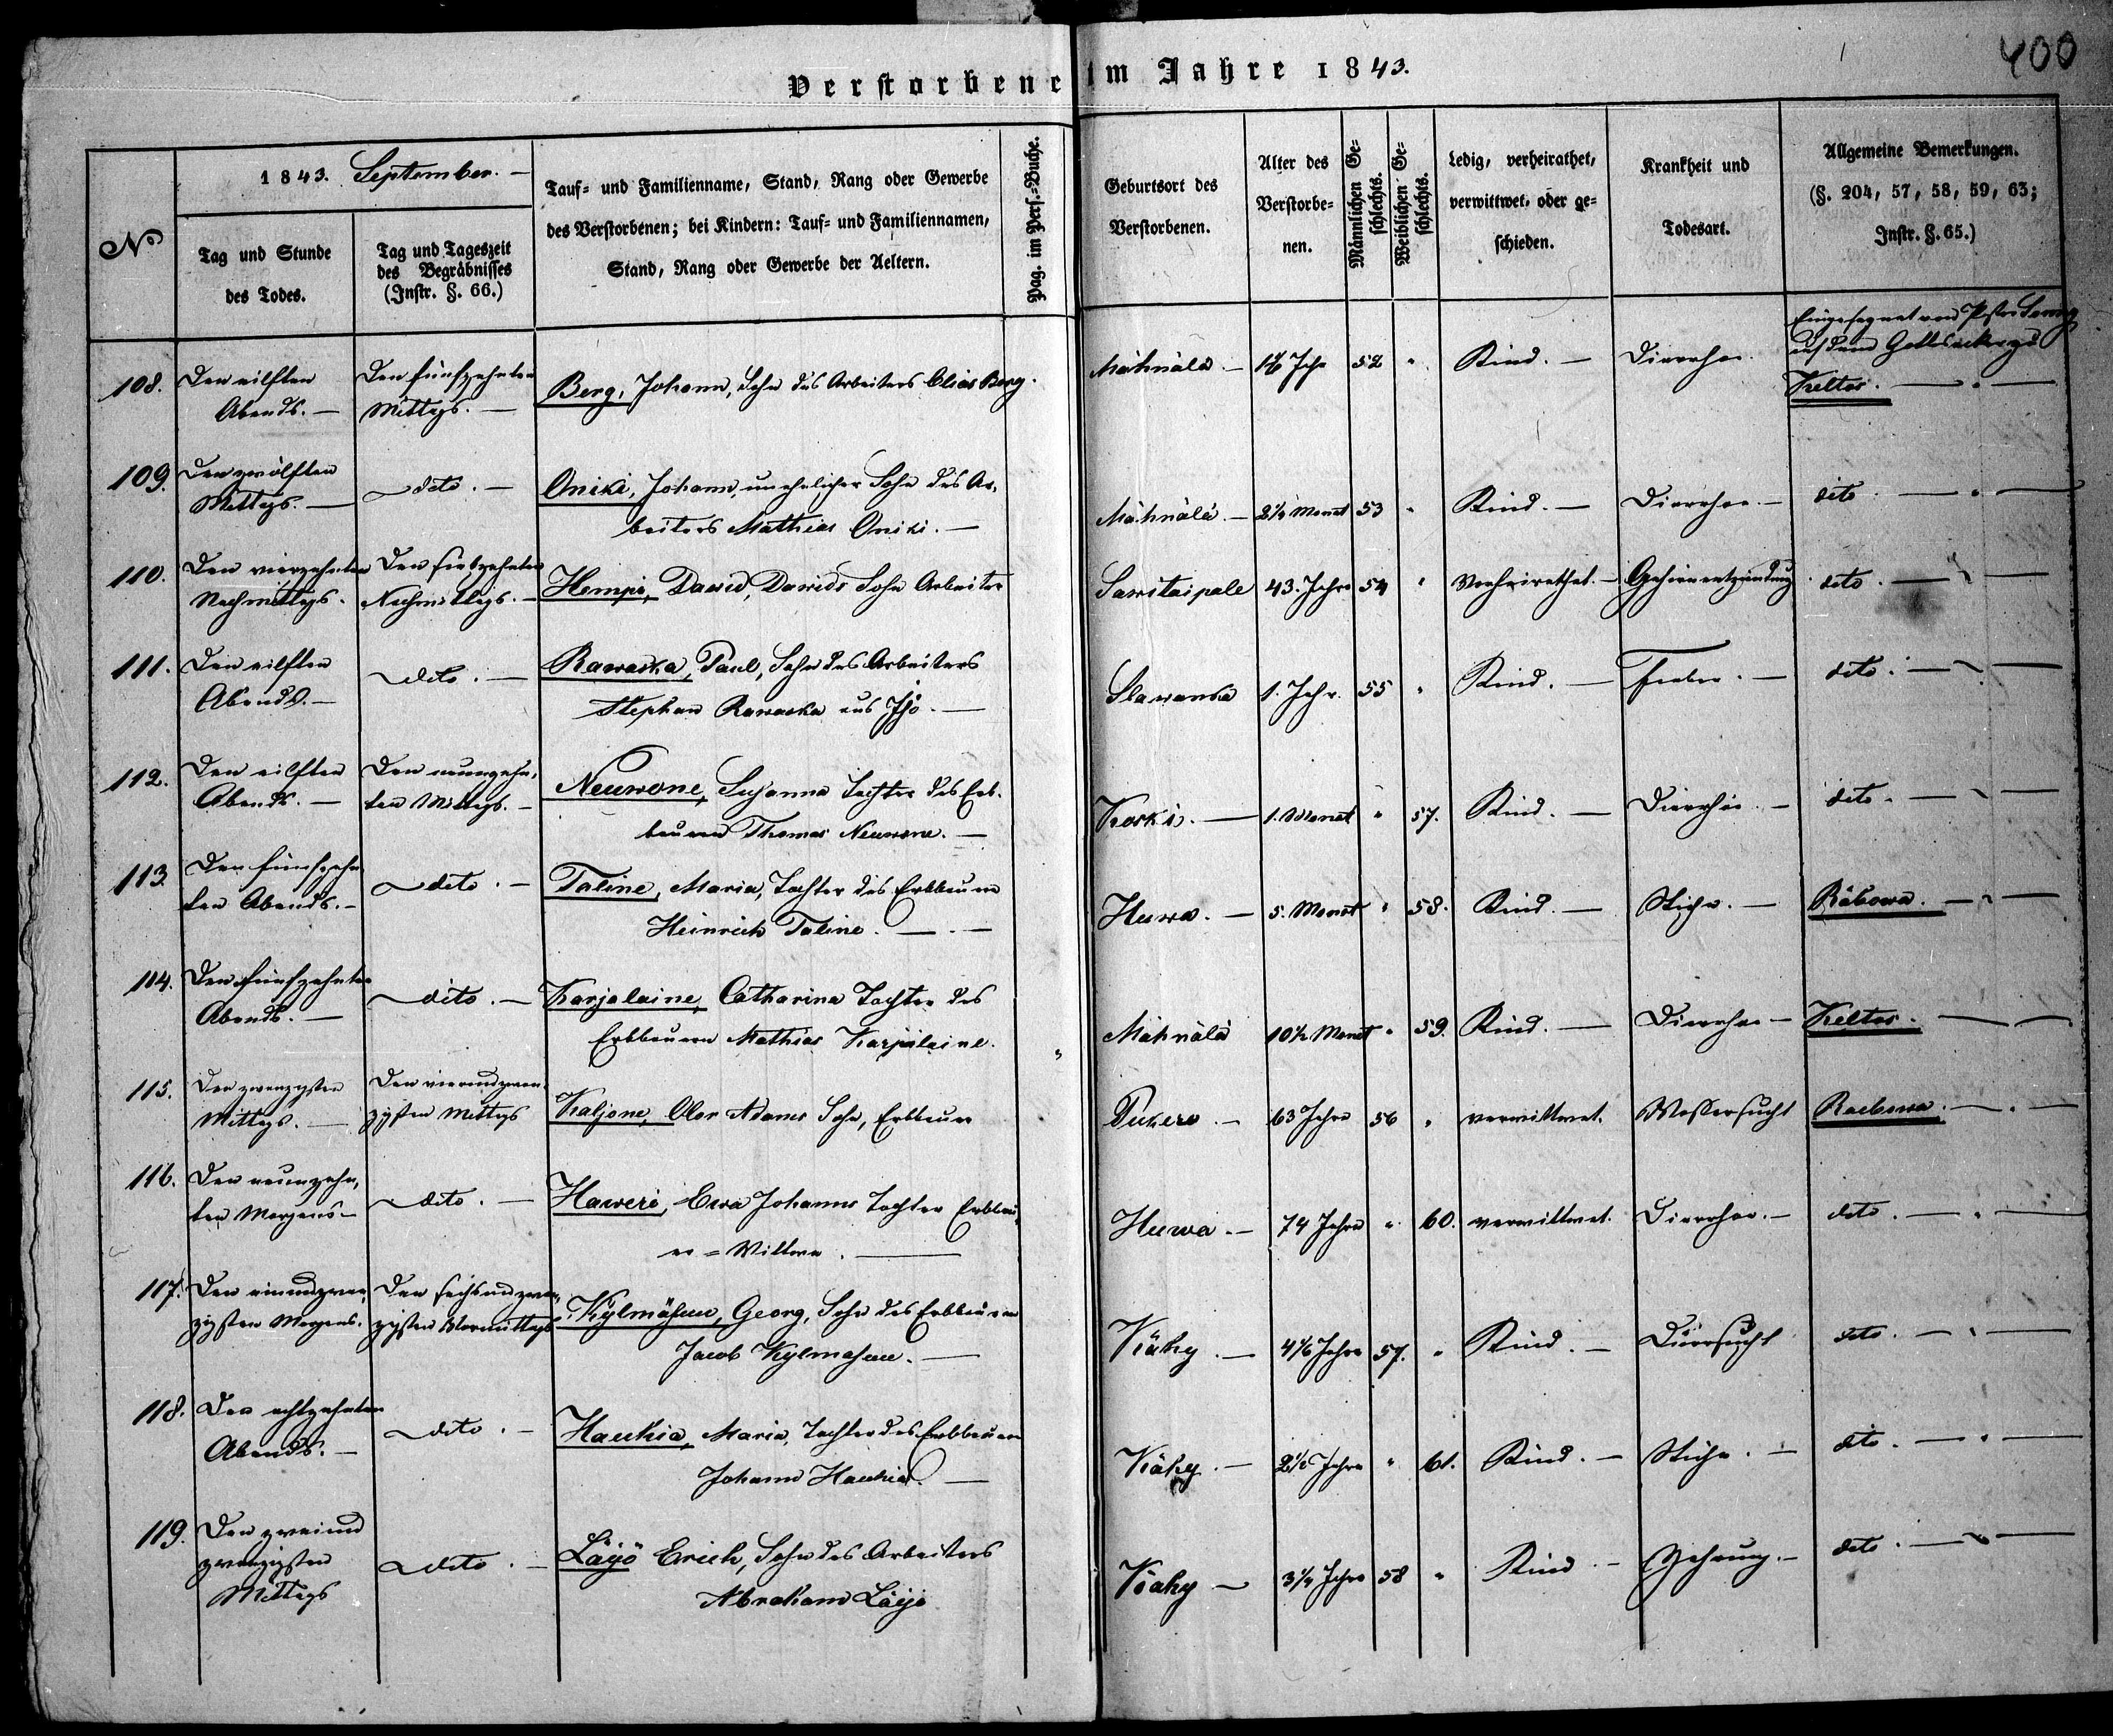 400
Verstorbene im Jahre 1843.
No
1843. September.
Tag und Stunde
des Todes.
Tag und Tageszeit
des Begräbnisses
(Instr. §. 66.)
Tauf- und Familienname, Stand, Rang oder Gewerbe
des Verstorbenen; bei Kindern: Tauf- und Familiennamen,
Stand, Rang oder Gewerbe der Aeltern.
Pag. im Pers.-Buche.
Geburtsort des
Verstorbenen.
Alter des
Verstorbe-
nen.
Männlichen Ge-
schlechts.
Weiblichen Ge-
schlechts.
Ledig, verheirathet,
verwittwet, oder ge-
schieden.
Krankheit und
Todesart.
Allgemeine Bemerkungen.
(§. 204, 57, 58, 59, 63;
Instr. §. 65.)
108.
Den eilften
Abends. —
Den fünfzehnten
Mittags. —
Berg, Johann, Sohn des Arbeiters Elias Berg.
Mähnälä —
Jahr
52
"
Kind. —
Diarrhoe.
Eingesegnet von
auf dem Gottesacker zu
Keltos. —
109.
Den zwölften
Mittags. —
dito. —
Oniki, Johann, unehelicher Sohn des Ar-
beiters Mathias Oniki. —
Mähnälä. —
2½ Monat
53
"
Kind. —
Diarrhoe. —
dito. —
110.
Den vierzehnten
Nachmittags.
Den siebzehnten
Nachmittags. —
Hempi, David, Davids Sohn Arbeiter
Sawitaipale
43. Jahre
54
"
Verheirathet. —
Gehirnentzündung.
dito. —
111.
Den eilften
Abends. —
dito. —
Rawaska, Paul, Sohn des Arbeiters
Stephan Rawaska aus
Slawanka
1. Jahr.
55
"
Kind. —
Fieber. —
dito. —
112.
Den eilften
Abends. —
Den neunzehn-
ten Mittags. —
Neuwone, Susanna Tochter des Erb-
bauern Thomas Neuwone. —
Koski. —
1. Monat
"
57.
Kind. —
Diarrhoe. —
dito. —
113.
Den fünfzehn-
ten Abends. —
dito. —
Taline, Maria, Tochter des Erbbauern
Heinrich Taline. —
Huwa. —
5. Monat
"
58.
Kind. —
Stiche. —
Räbowa. —
114.
Den fünfzehnten
Abends. —
dito. —
Karjalaine, Catharina Tochter des
Erbbauern Mathias Karjalaine.
Mähnälä
10½ Monat
"
59.
Kind. —
Diarrhoe —
Keltos. —
115.
Den zwanzigsten
Mittags. —
Den vierundzwan-
zigsten Mittags
Kaljone, Adams Sohn, Erbbauer
Pukero. —
63 Jahre
56
"
verwittwet.
Wassersucht
Raebowa. —
116.
Den neunzehn-
ten Morgens —
dito. —
Haweri, Ewa Johanns Tochter Erbbau-
er = Wittwe. —
Huwa. —
74 Jahre
"
60.
verwittwet.
Diarrhoe. —
dito. —
117.
Den einundzwan-
zigsten Morgens.
Den sechsundzwan-
zigsten Vormittags
Kylmäsuu, Georg, Sohn des Erbbauern
Jacob Kylmasuu. —
Käky. —
4⅙ Jahre
57.
"
Kind. —
Dürrsucht
dito. —
118.
Den achtzehnten
Abends. —
dito. —
Haukia, Maria, Tochter des Erbbauern
Johann Haukia. —
Käky. —
Jahre
"
61.
Kind. —
Stiche. —
dito. —
119.
Den zweiund
zwanzigsten
Mittags
dito. —
Läyö Erich, Sohn des Arbeiters
Abraham Läyö
Käky —
3¼ Jahre
58
"
Kind —
Zehrung. —
dito. —